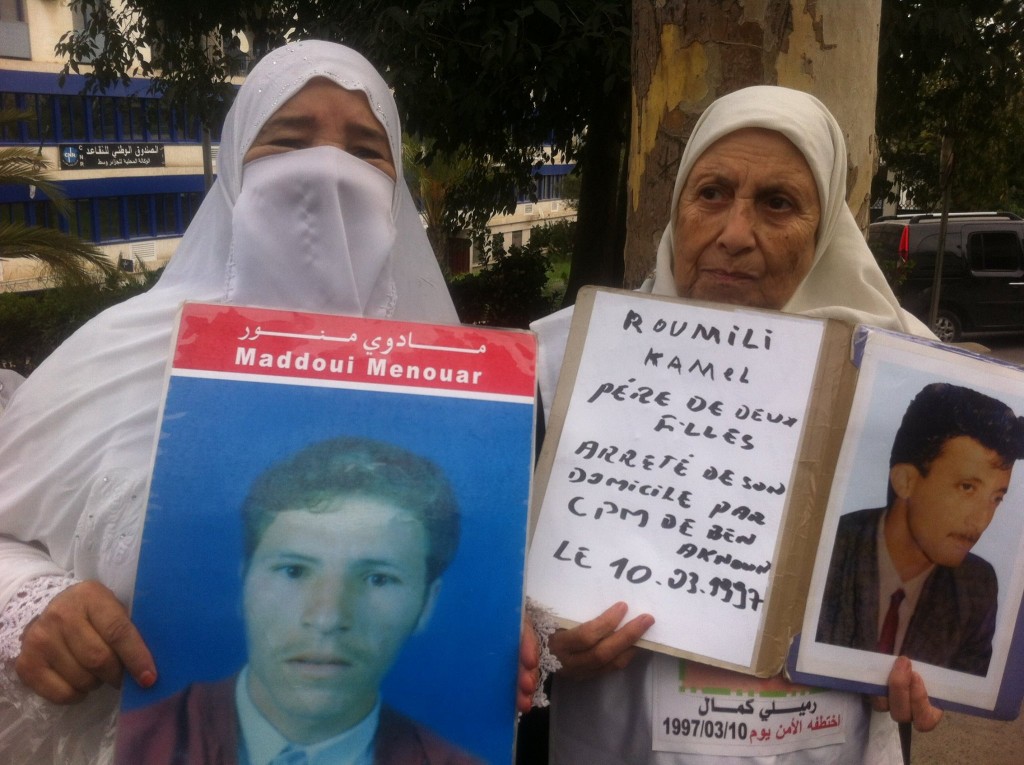 الصندوق الوطني للتقاعد
الوكالة المحلية للجزائر وسط
مـــادوي منـــور
Maddoui Menouar
ROUMiLi
KAMEL
PÉRE DE DEUX
FILLES
ARRETÉ DE SON
DOMICILE PAR
CPM DE BEN
AKNOUN
LE 10.03.1997
رميلي كمال
اختطفه الأمن يوم 1997/03/10